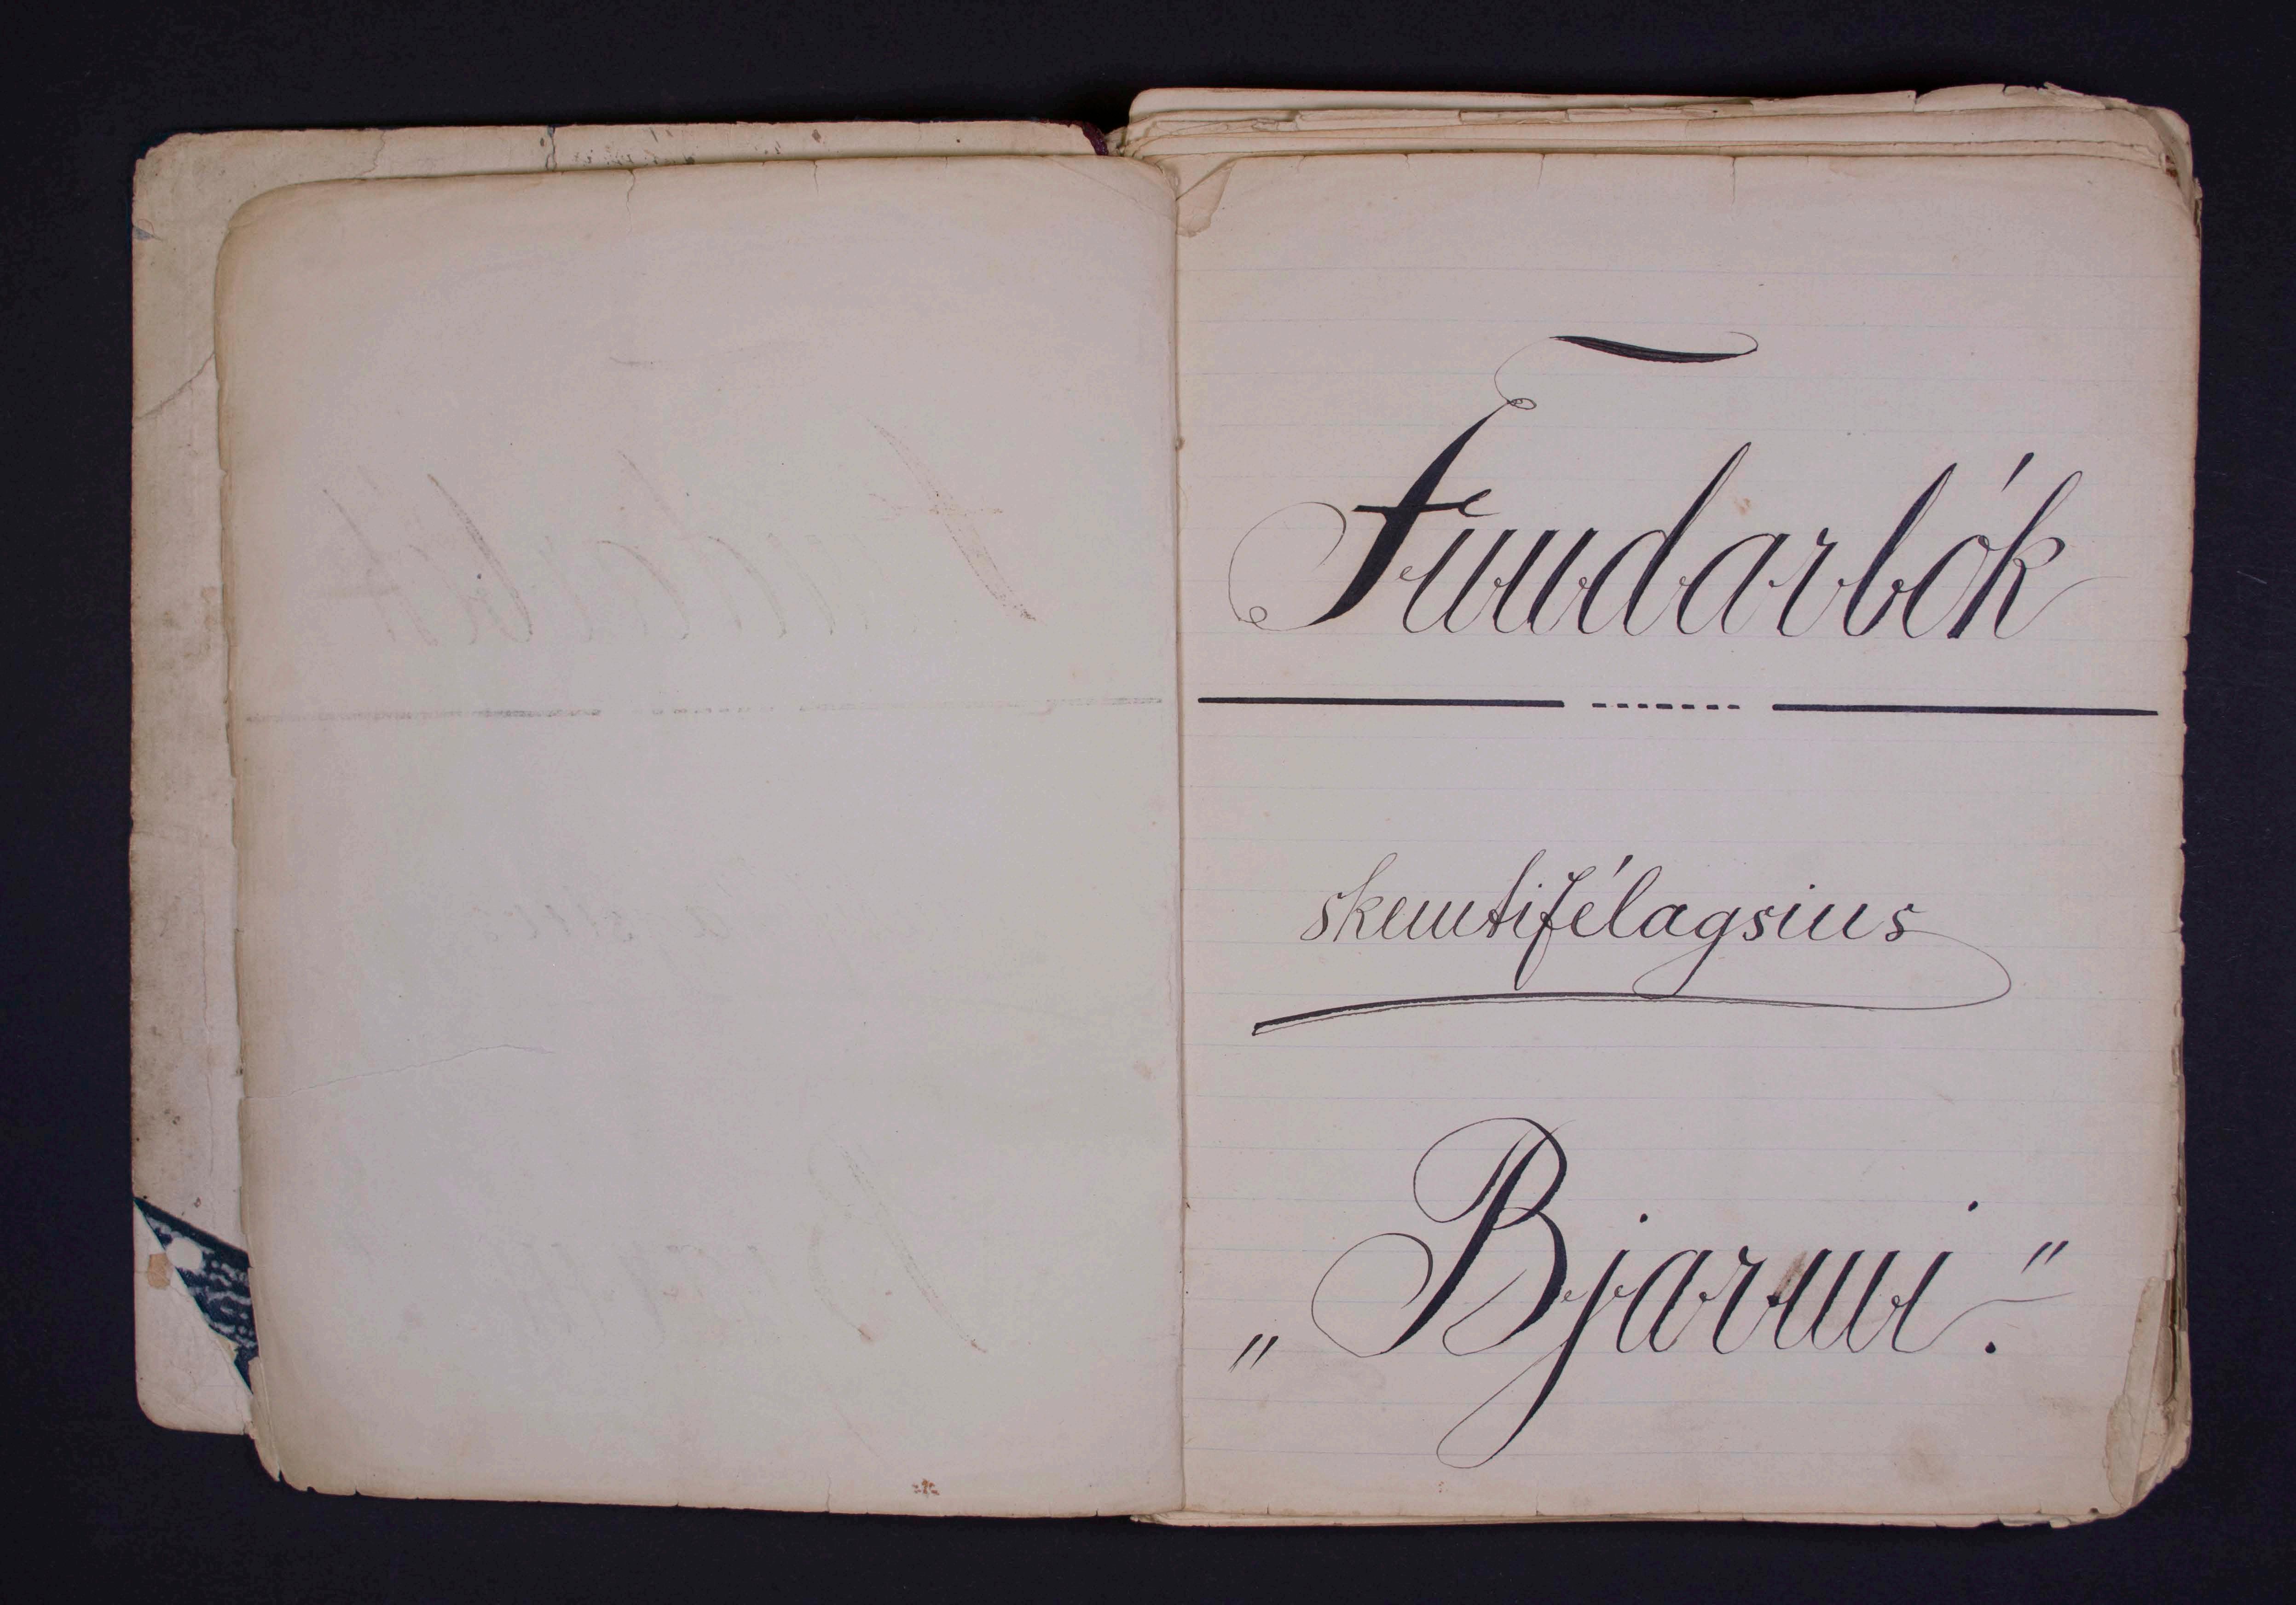 Fundarbók
skemtifélagsins
„Bjarmi."